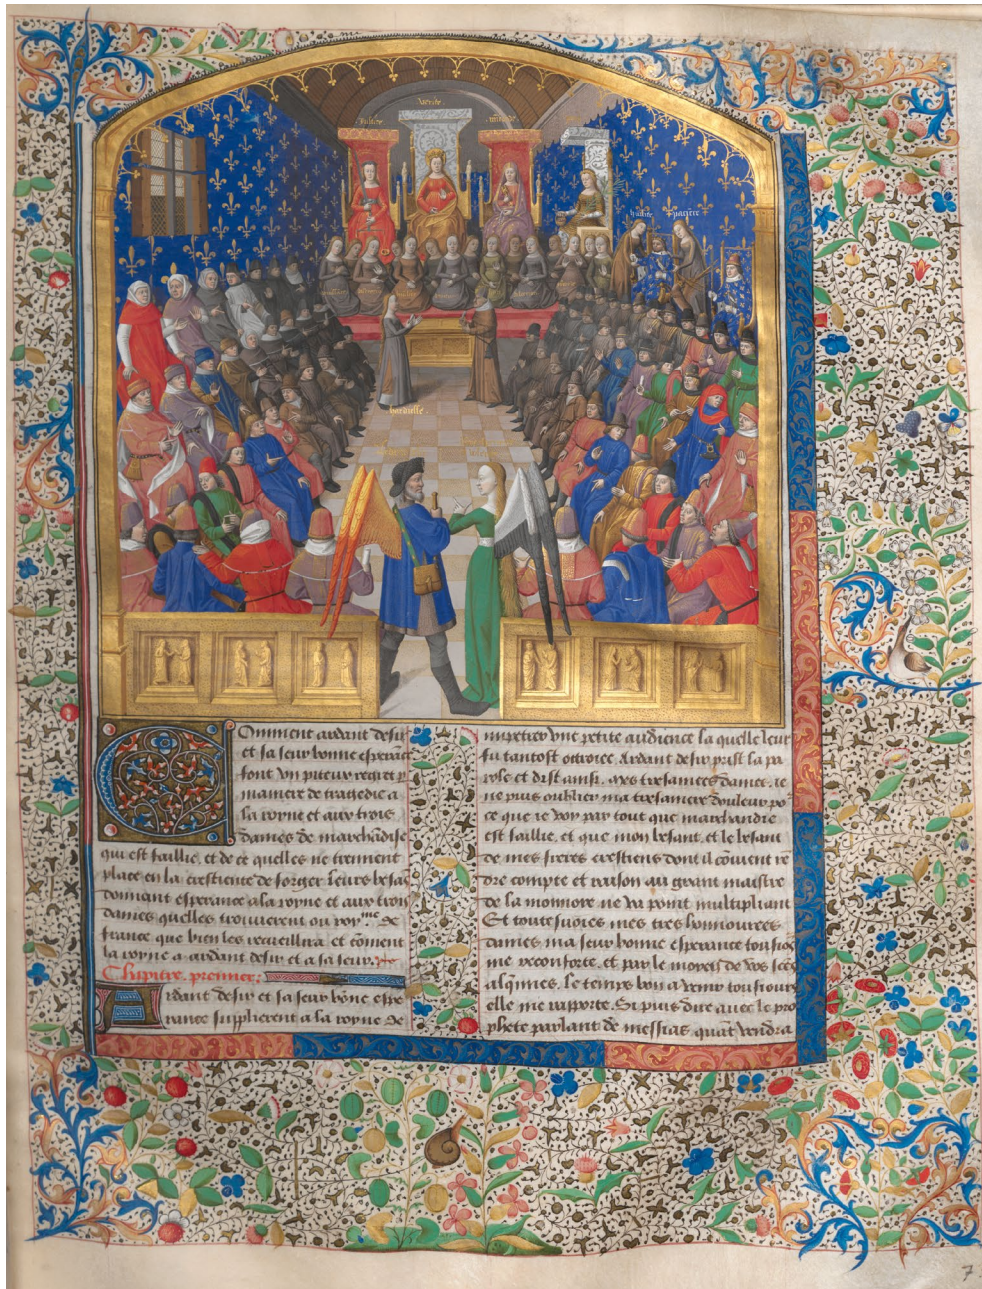 Verite
Justice
hardiesse
Omment ardant desir
et sa seur bonne esperāce
font vn piteux regret p
maniere de tragedie a
la royne et aux trois
dames de marchādise
qui est faillie, et de ce quelles ne tiennent
place en la crestiente de forger leurs besās
donnant esperance a la royne et aux trois
dames quelles trouueront ou roy.me de
france que bien les recueillira et cōment
la royne a ardant desir et a sa seur.
Chapitre premier.
Ardant desir et sa seur bōne espe
rance supplierent a la royne de
impetrer vne petite audience la quelle leur
fu tantost ottroiee Ardant desir prist la pa
role et dist ainsi. mes tresamees dames, ie
ne puis oublier ma tresamere douleur po
ce que ie voy par tout que marchandise
est faillie, et que mon besant, et le besant
de mes freres crestiens dont il couient re
dre compte et raison au grant maistre
de la monnoie ne va point multipliant
Et toutesuoies mes tres honnourees
dames ma seur bonne esperance tousios
me reconforte, et par le moyen de vos
alqimies. le temps bon a venir tousiours
elle me rapporte. Si puis dire auec le pro
phete parlant de messias, quāt vendra
7